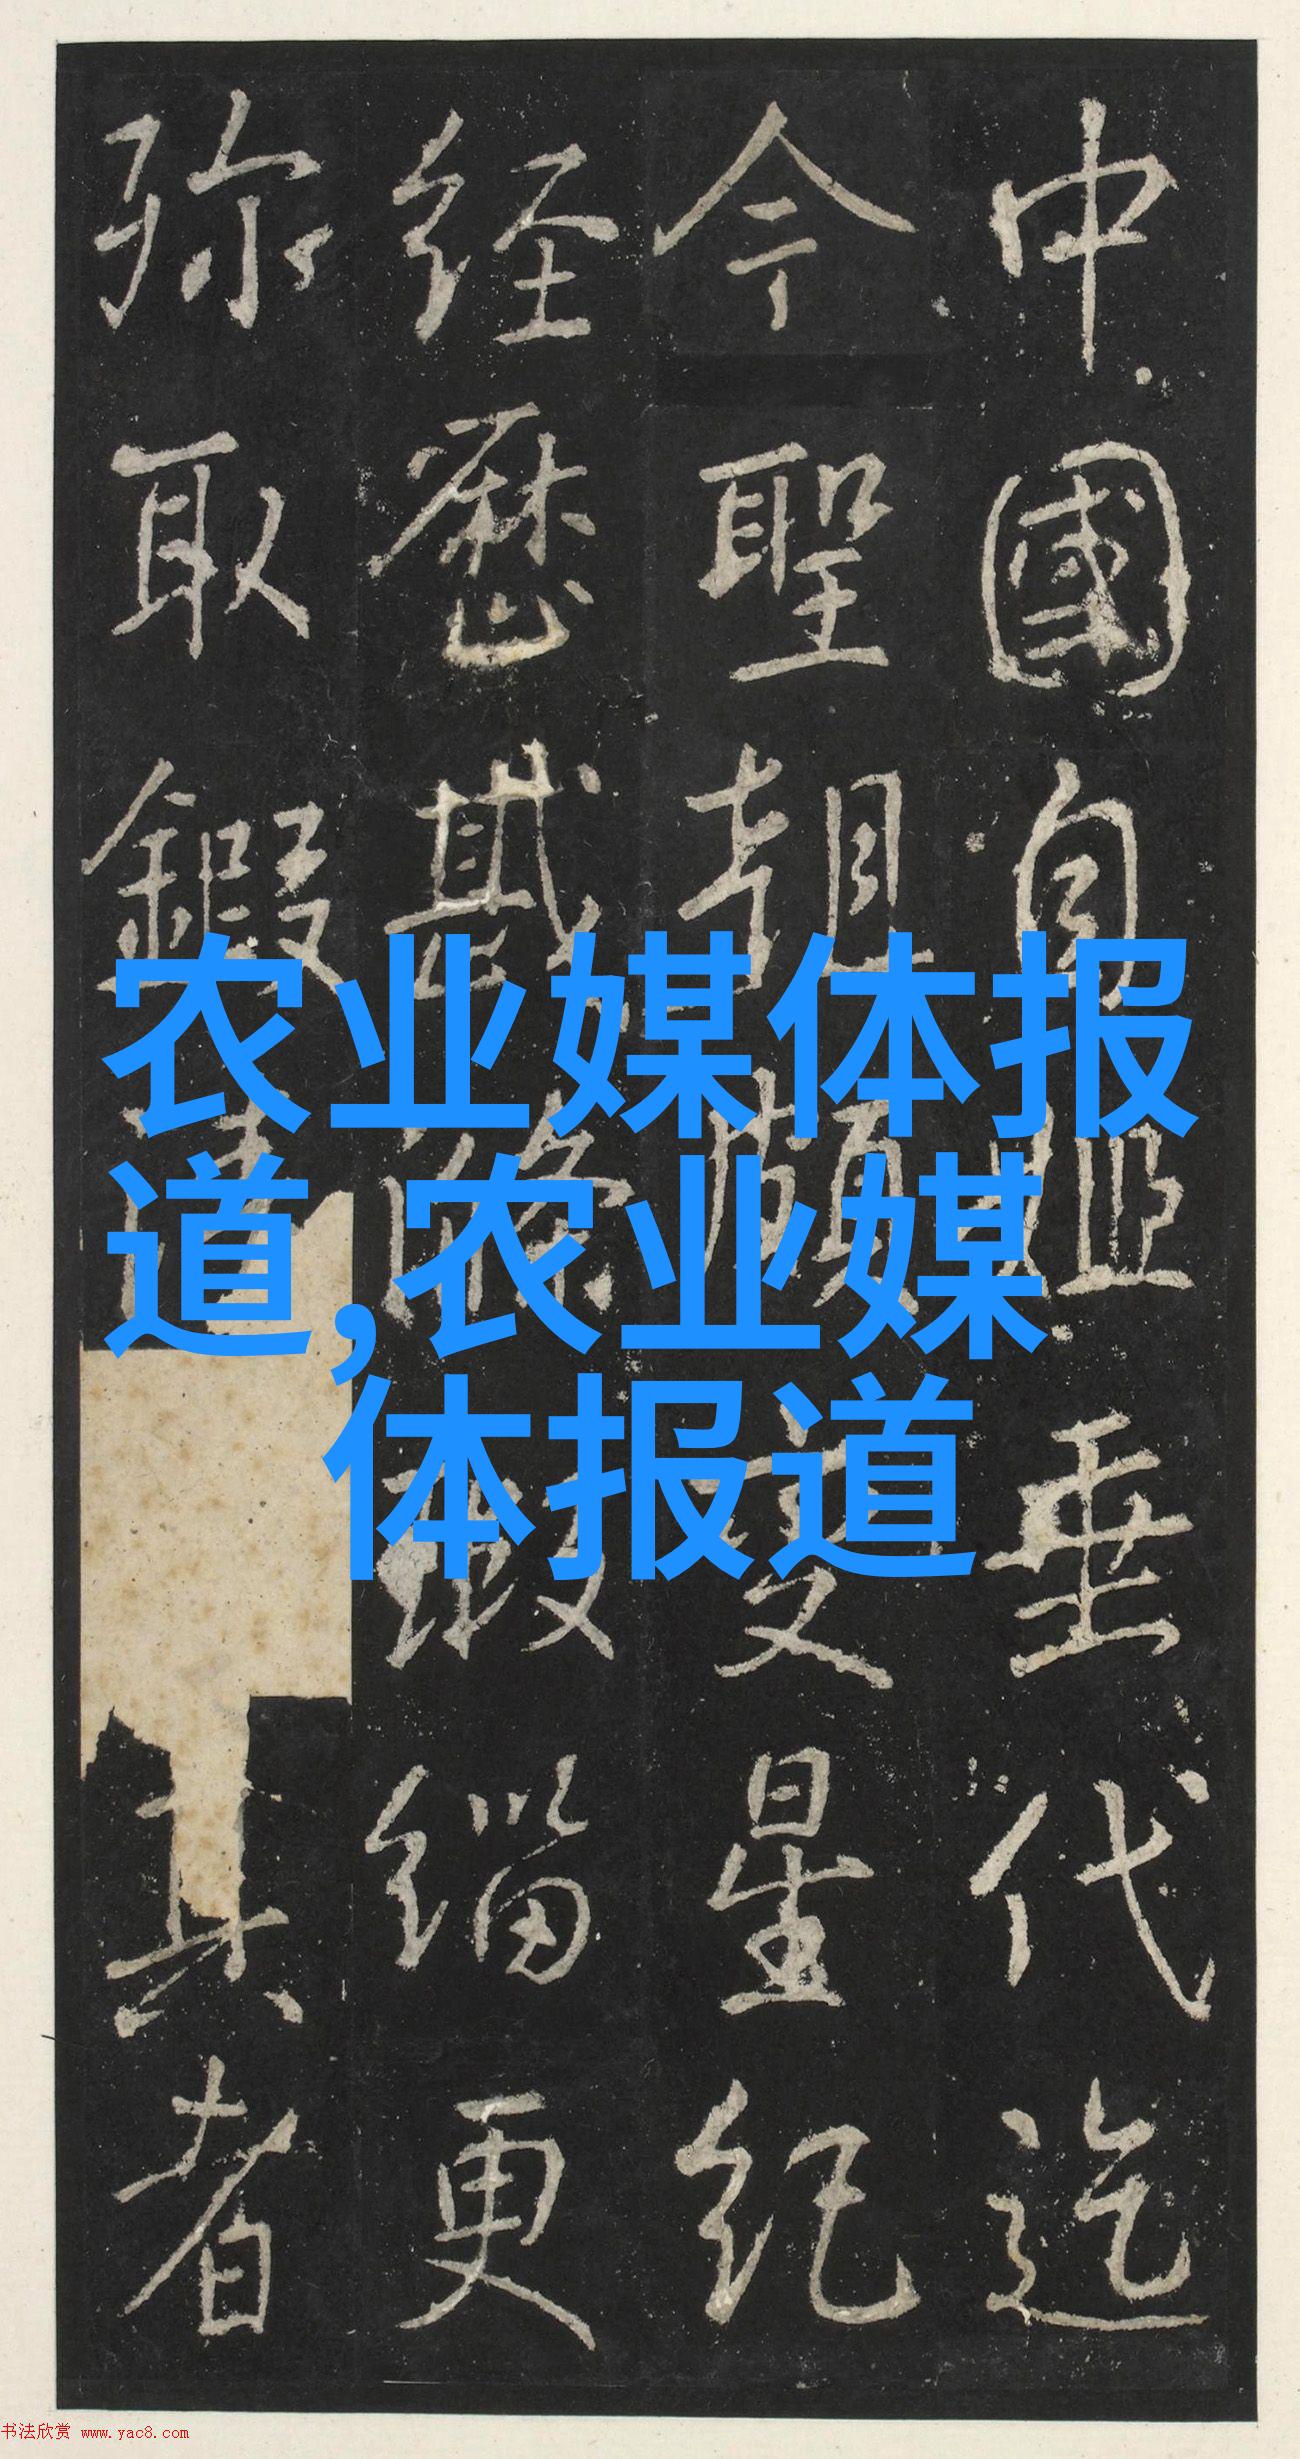 中國自垂代迄
今聖朝星紀
经歷緇更
弥取鍜真者
农业媒体报
道,农业媒
体报道
书法欣赏 www.yac8.com